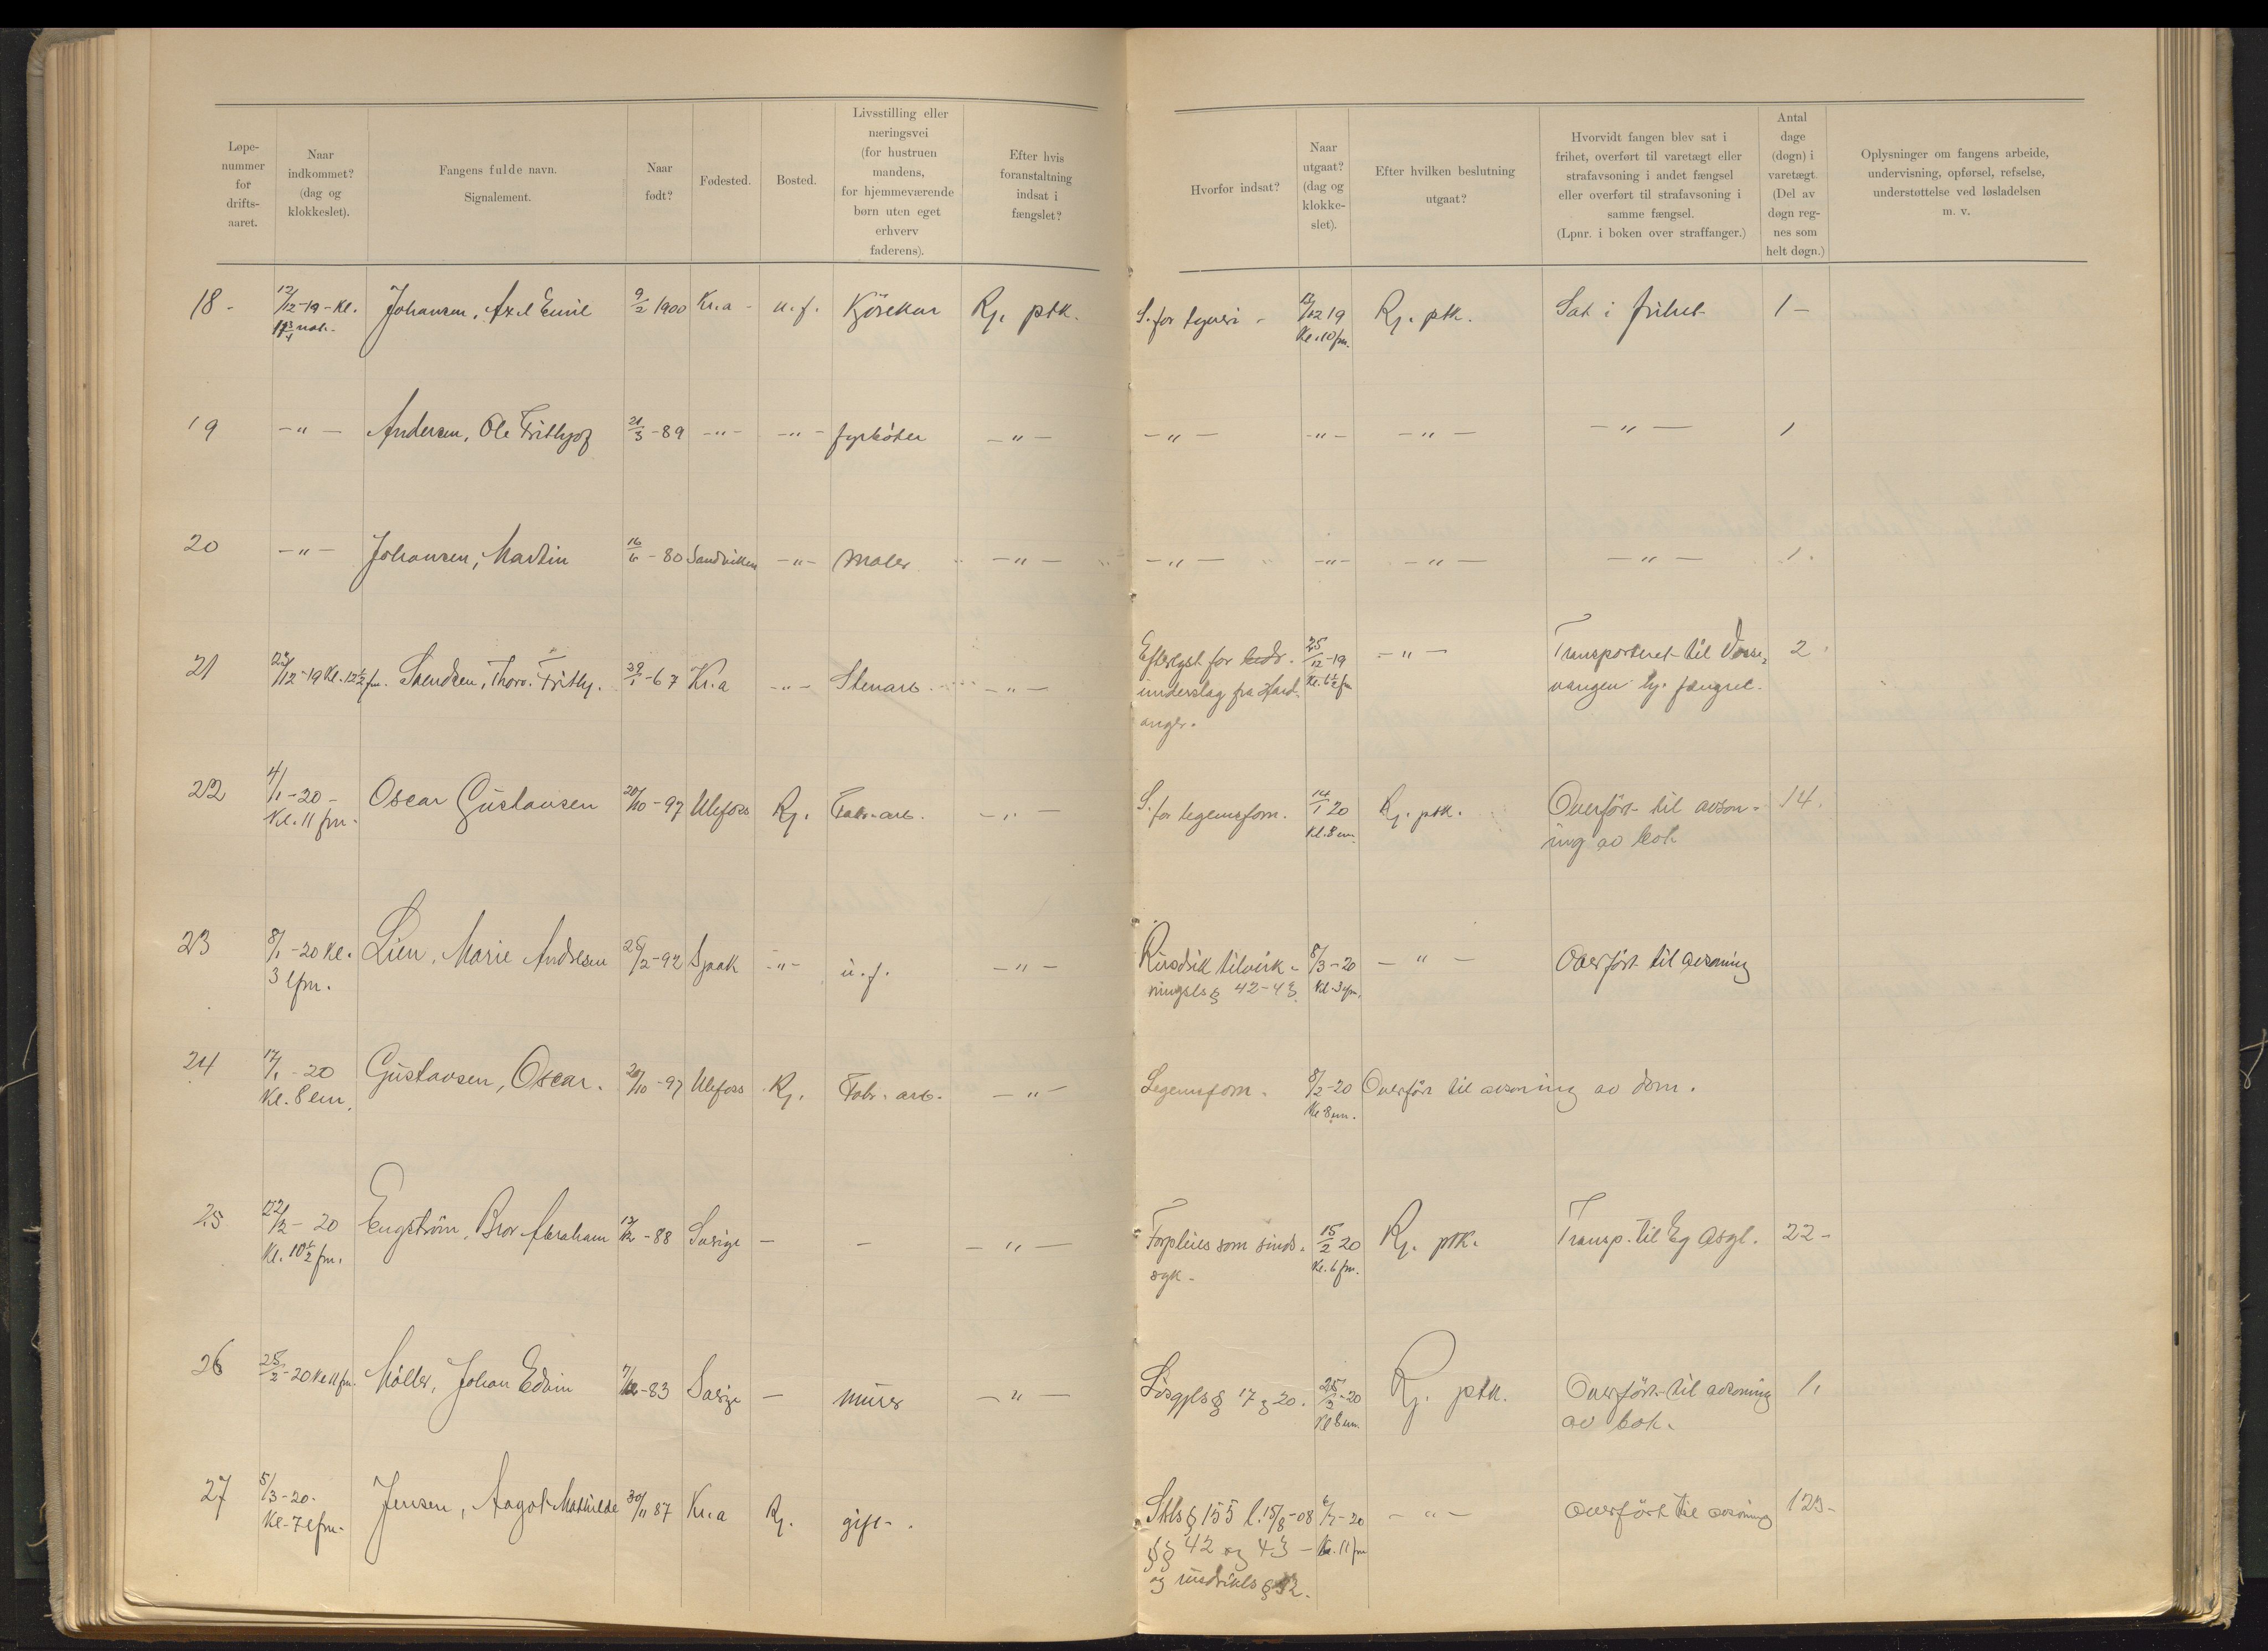 Løpe-
nummer
for
drifts-
aaret.
Naar
indkommet?
(dag og
klokkeslet).
Fangens fulde navn.
Signalement.
Naar
født?
Fødested.
Bosted.
Livsstilling eller
næringsvei
(for hustruen
mandens,
for hjemmeværende
børn uten eget
erhverv
faderens).
Efter hvis
foranstaltning
indsat i
fængslet?
Hvorfor indsat?
Naar
utgaat?
(dag og
klokke-
slet).
Efter hvilken beslutning
utgaat?
Hvorvidt fangen blev sat i
frihet, overført til varetægt eller
strafavsoning i andet fængsel
eller overført til strafavsoning i
samme fængsel.
(Lpnr. i boken over straffanger.)
Antal
dage
(døgn) i
varetægt.
(Del av
døgn reg-
nes som
helt døgn.)
Oplysninger om fangens arbeide,
undervisning, opførsel, refselse,
understøttelse ved løsladelsen
m. v.
18 - 12/12-19-Kl. Johansen, Axel Emil 9/2 1900 Kr.a - u.f. Kjörekar Rj. ptk. S. for tyveri - 13/12 19 Rj. ptk. Sat i frihet 1 -
Kl. 10 fm.
19 -"- Andersen, Ole Frithjof 21/3-89 -"- -"- fyrböter -"- -"- -"- -"- -"- 1
20 -"- Johansen, Martin 16/6-80 Sandviken -"- Maler -"- -"- -"- -"- -"- 1.
21 -19 Kl. 12½ fm. Svendsen, Thorv. Frithj. 29/1-67 Kr.a -"- Stenarb. -"- Efterlyst for bedr. 25/12-19 -"- Transporteret til Vosse- 2
underslag fra Hard- Kl. 6½ fm vangen hj. fængsel.
anger.
22 4/1-20- Oscar Gustavsen 20/10-97 Ulefoss Rj. Fabr-arb. -"- S. for legemsforn. 14/1 20 Rj. ptk. Overfört til avson- 14.
Kl. 11 fm. Kl. 8 em. ing av bot
23 8/1-20 Kl. Lien, Marie Andrsen -92 Sjaak -"- u.f. -"- tilvirk- 8/3-20 -"- Overfört til avsoning
3 efm. ningsls § 42-43 Kl. 3
24 17/1-20 Gustavsen, Oscar. 20/10-97 Ulefoss Rj. Fabr. arb. -"- Legemsforn. 8/2-20 Overför til avsoning av dom.
Kl. 8 em. Kl 8 em.
25 -20 Engström, Bror Abraham -88 Sverige - - -"- Forpleies som sinds- 15/2 20 Rj. ptk. Transp. til Eg Asyl. 22-
Kl. 10½ fm. syk- Kl. 6 fm.
26 25/2-20 Kl 11 fm. Möller, Johan Edvin -83 Sverige - murer -"- Lösgjls § 17 & 20. 25/2-20 Rj. ptk. Overfört til avsoning 1.
Kl 8 em. av bot.
27 5/3-20. Jensen, Aagot Mathilde 30/11 87 Kr.a Rj. gift-. Stls § 155 l. 15/8-08 -20 -"- Overfört til avsoning 123-
Kl. 7 efm- §§ 42 og 43 - Kl. 11 fm
og rusdrikls § 32.